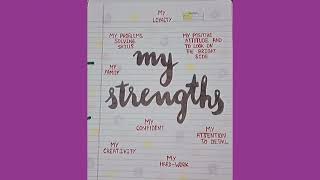 MY
LOYALTY
MY PROBLEMS
SOLVING
SKILLS
MY POSITIVE
ATTITUDE AND
TO LOOK ON
THE BRIGHT
SIDE
my
MY
FAMILY
strengths
MY
CONFIDENT
MY
ATTENTION
TO DETAIL
MY
CREATIVITY
MY
HARD-WORK